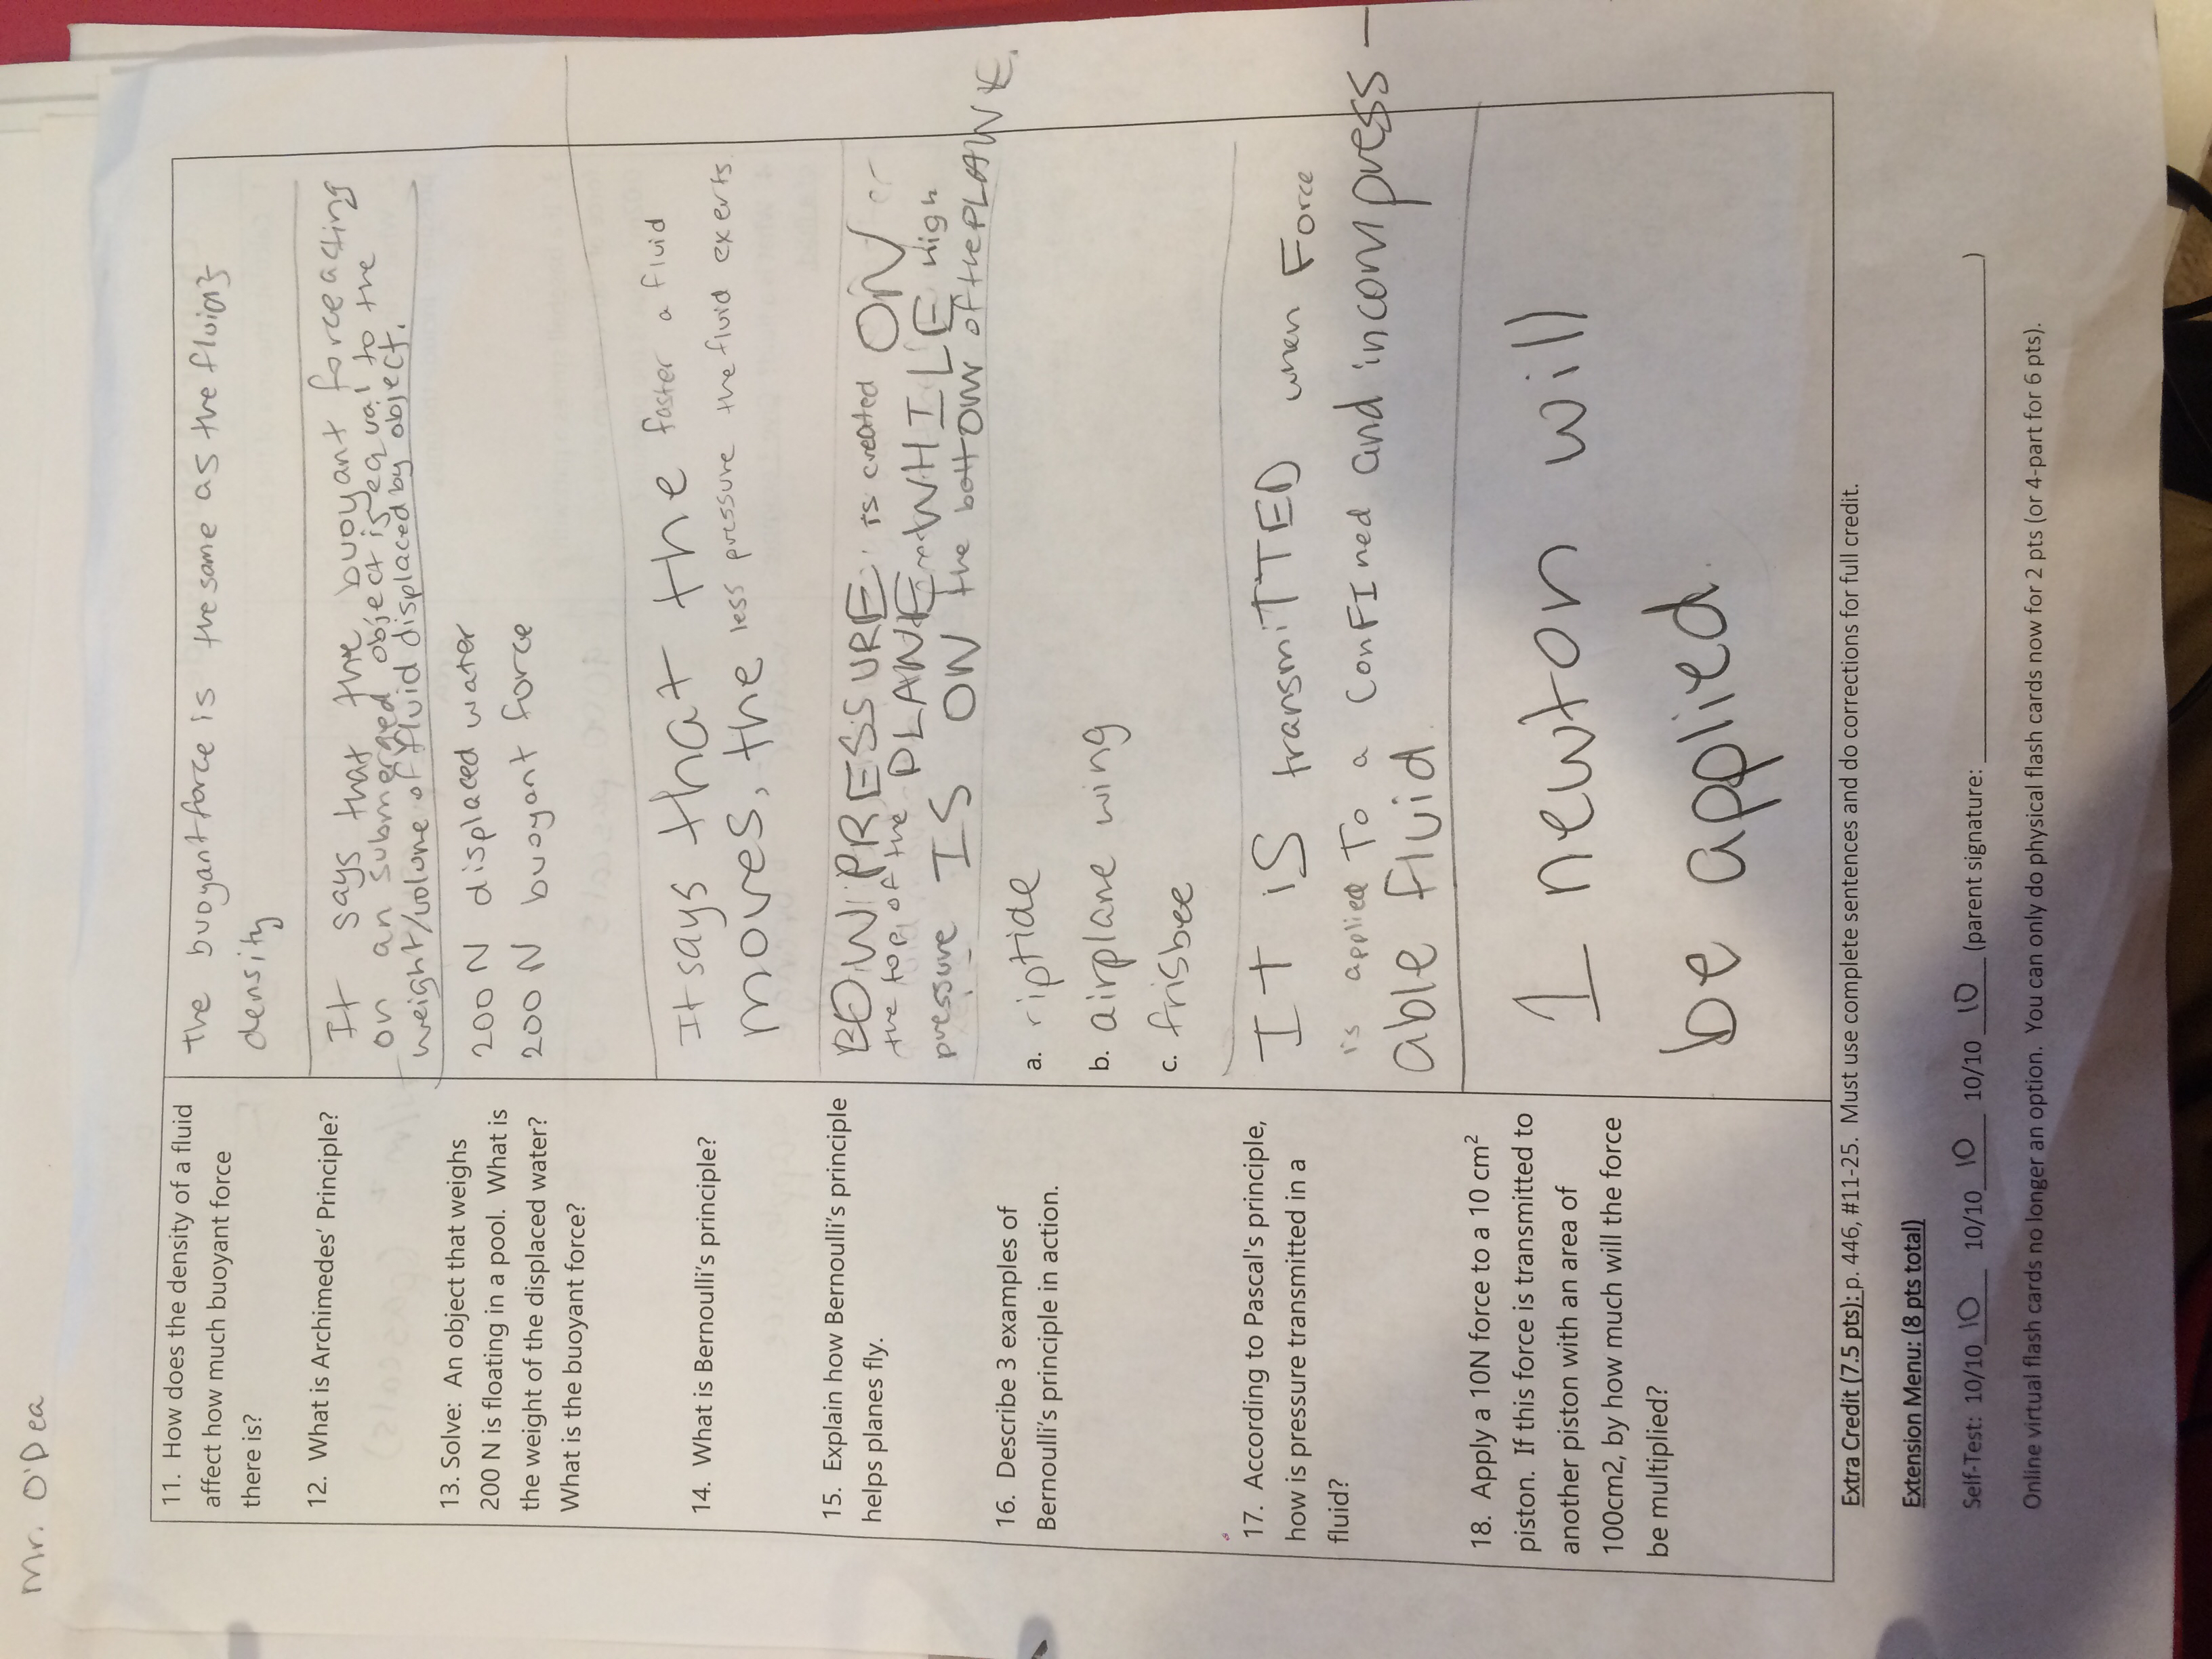 Mr. O'Dea
11. How does the density of a fluid
affect how much buoyant force
there is?
the buoyant force is the same as the fluid's
density
12. What is Archimedes' Principle?
It says that the buoyant force acting
on an submerged object is equal to the
weight/volume of fluid displaced by object.
13. Solve: An object that weighs
200 N is floating in a pool. What is
the weight of the displaced water?
What is the buoyant force?
200 N displaced water
200 N buoyant force
14. What is Bernoulli's principle?
It says that the faster a fluid
moves, the less pressure the fluid exerts
15. Explain how Bernoulli's principle
helps planes fly.
LOW PRESSURE is created ON
the top of the PLANE WHILE high
pressure IS ON the bottom of the PLANE.
16. Describe 3 examples of
Bernoulli's principle in action.
a. riptide
b. airplane wing
c. frisbee
17. According to Pascal's principle,
how is pressure transmitted in a
fluid?
IT iS transmiTTED when Force
is applied To a ConFIned and incompress-
able fluid.
18. Apply a 10N force to a 10 cm²
piston. If this force is transmitted to
another piston with an area of
100cm2, by how much will the force
be multiplied?
1 newton will
be applied.
Extra Credit (7.5 pts): p. 446, #11-25. Must use complete sentences and do corrections for full credit.
Extension Menu: (8 pts total)
Self-Test: 10/10 10 10/10 10 10/10 10 (parent signature: )
Online virtual flash cards no longer an option. You can only do physical flash cards now for 2 pts (or 4-part for 6 pts).